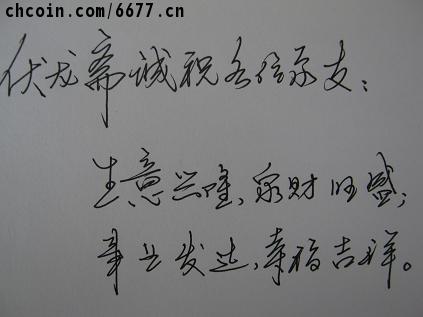 chcoin.com/6677.cn
伏龙斋诚祝各位泉友：
生意兴隆，泉财旺盛；
事业发达，幸福吉祥。